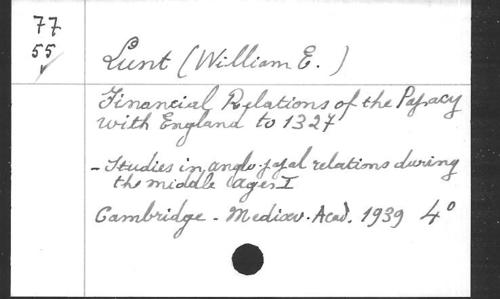 77
55
Lunt (William E. )
Financial Relations of the Papacy
with England to 1327
- Studies in anglo-papal relations during
the middle ages I
Cambridge - Mediaev. Acad. 1939 4°